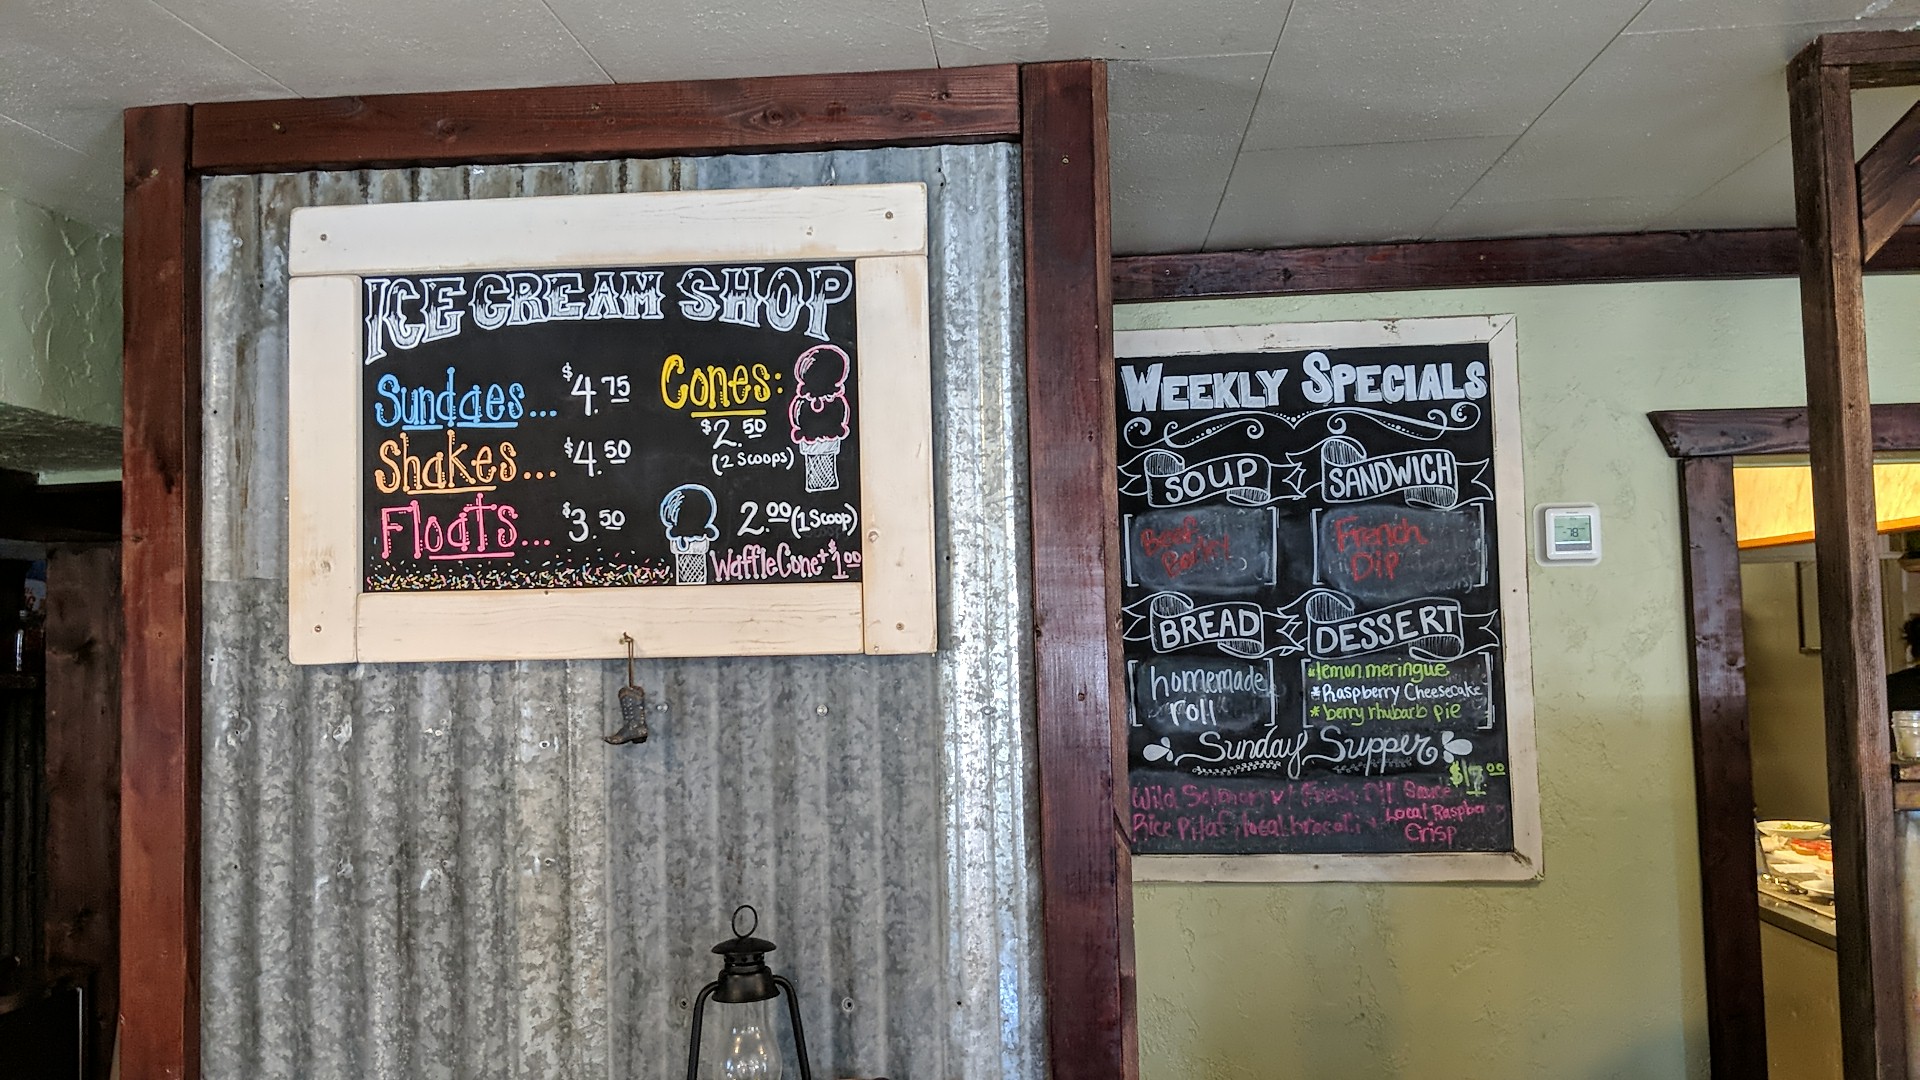 ICE CREAM SHOP
Sundaes... $4.75
Shakes... $4.50
Floats... $3.50
Cones:
$2.50
(2 Scoops)
2.00 (1 Scoop)
Waffle Cone + $1.00
WEEKLY SPECIALS
SOUP
Beef
Barley
SANDWICH
French
Dip
BREAD
homemade
roll
DESSERT
*lemon meringue
*Raspberry Cheesecake
*berry rhubarb pie
Sunday Supper
00
Wild Salmon w/ Fresh Dill Sauce
Rice Pilaf, local brocoli
Local Raspberry
Crisp
78